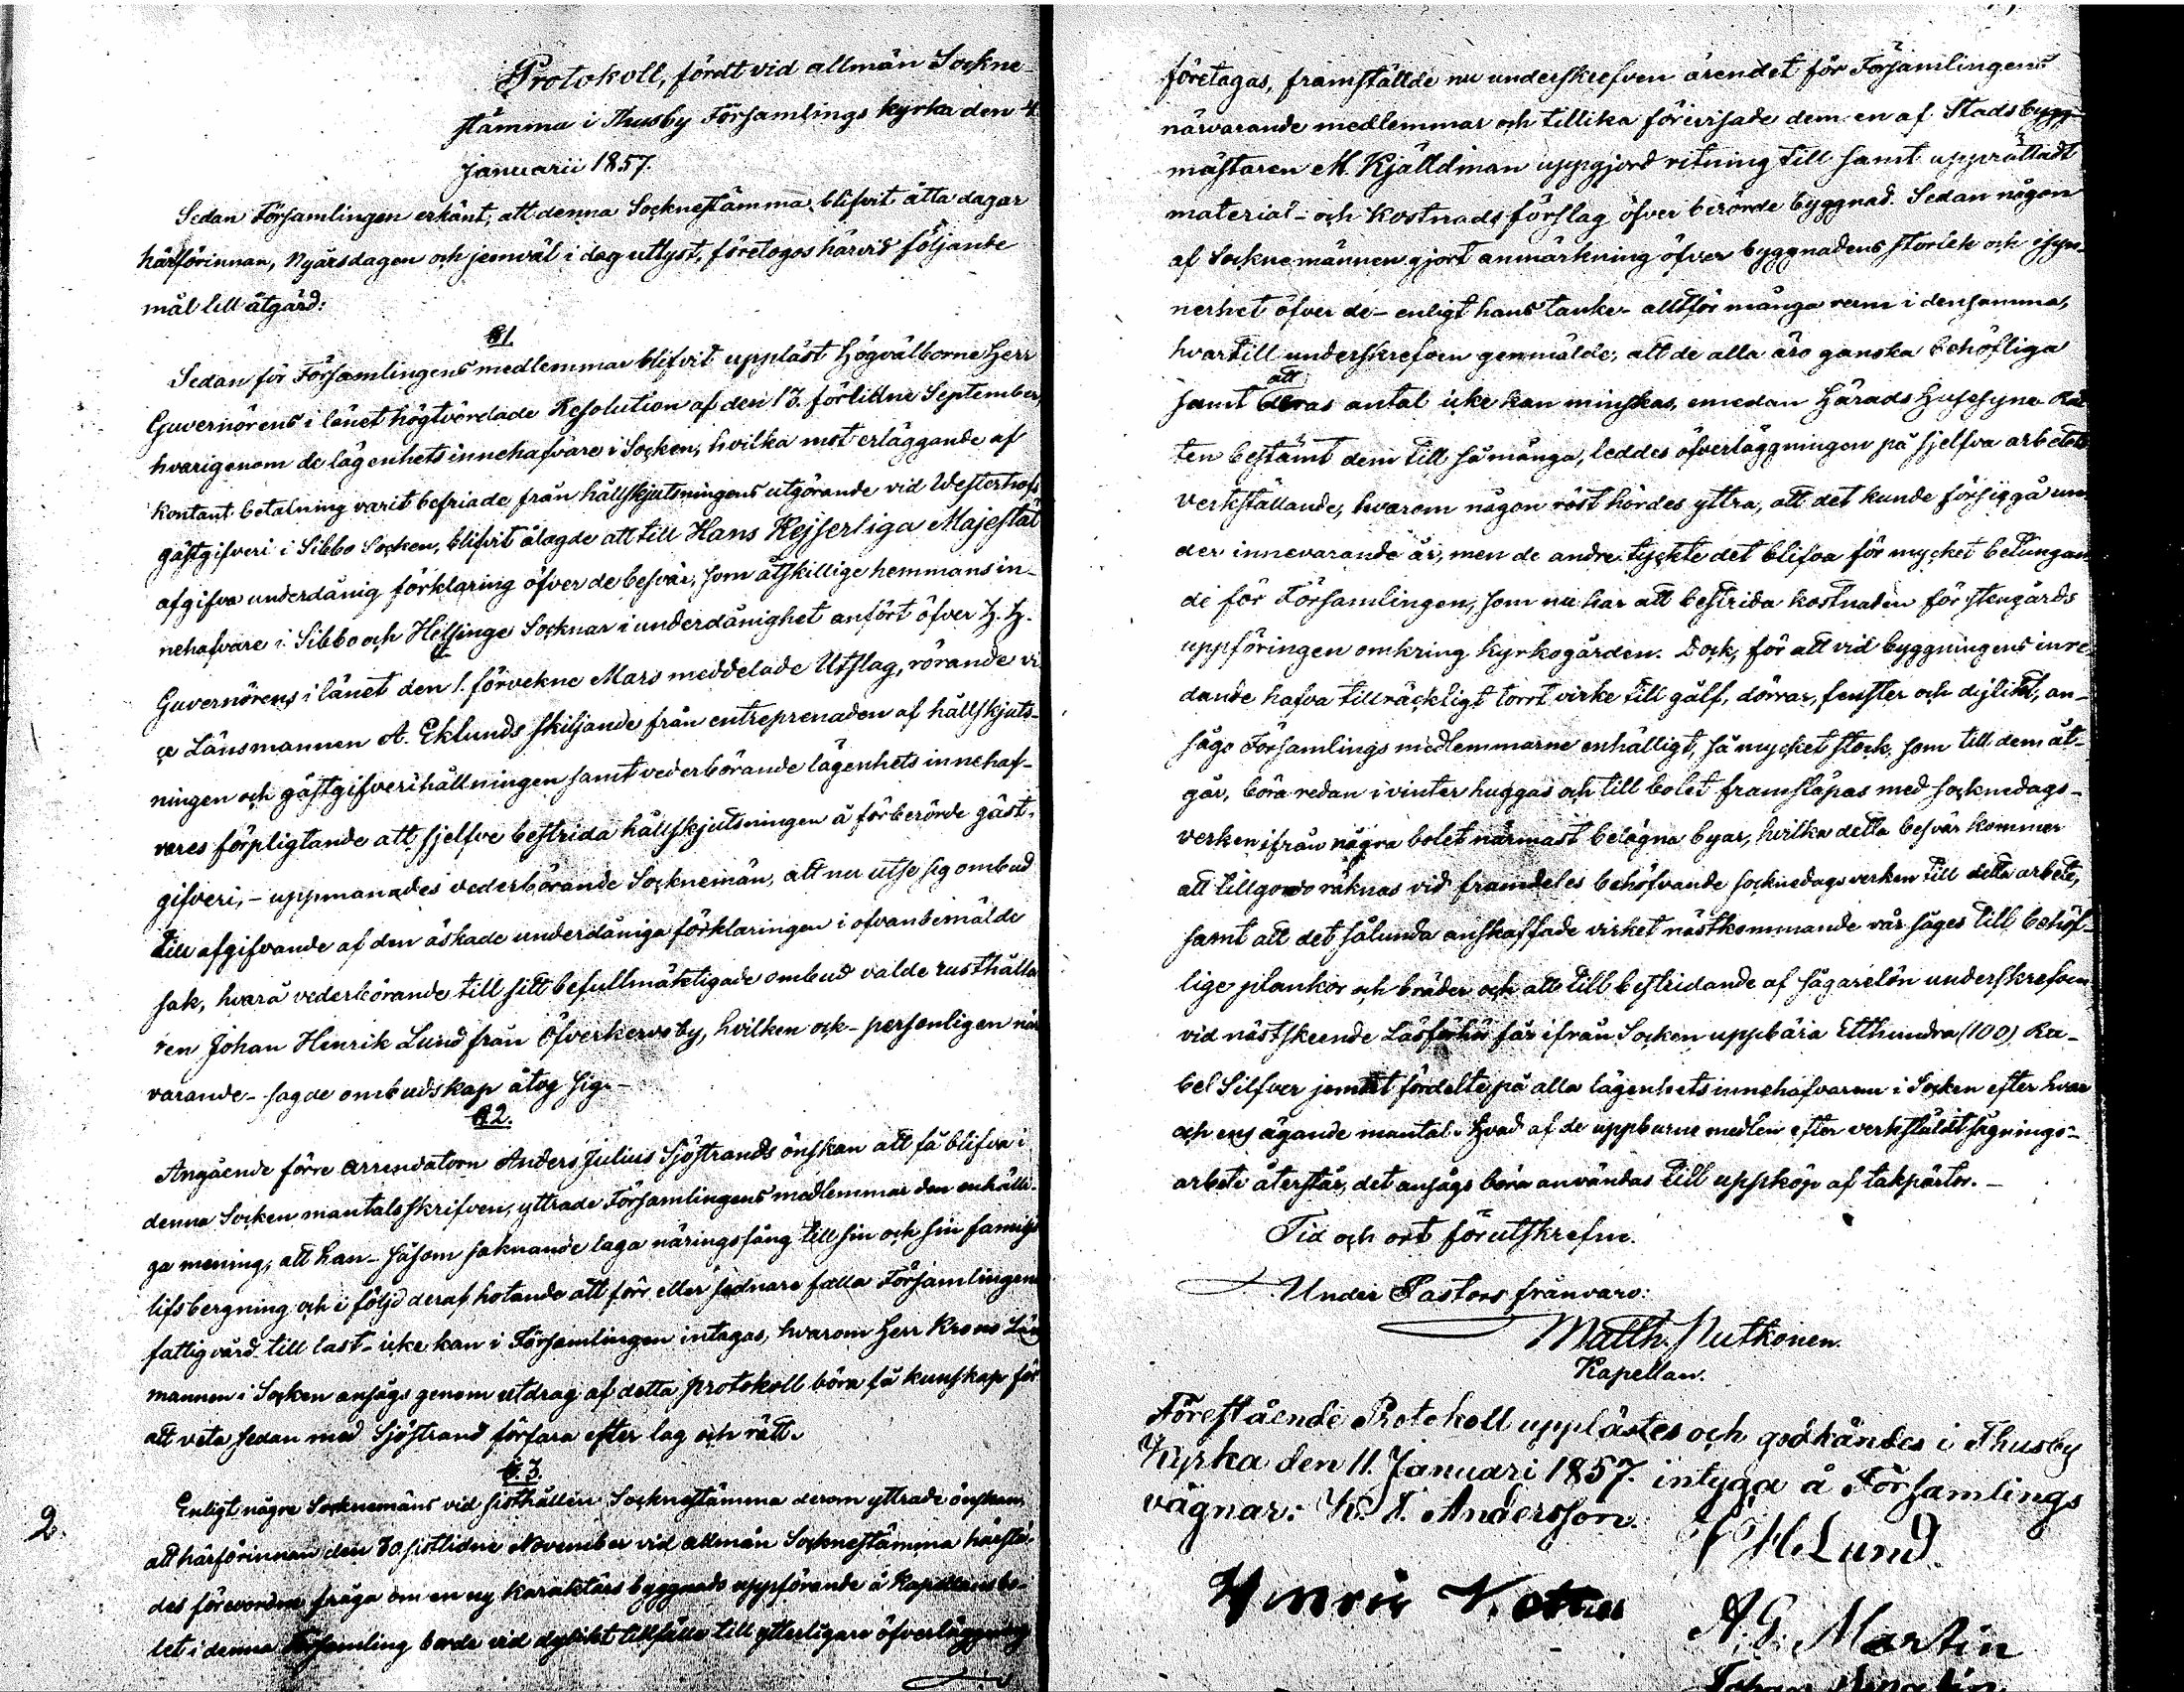 Protokoll, fördt vid allmän Sockne-
stämma i Thusby Församlings kyrka den 4.
Januarii 1857.
Sedan Församlingen erkänt, att denna Socknestämma blifvit åtta dagar
härförinnan, Nyårsdagen och jemväl i dag utlyst, företogos härvid följande
mål till åtgärd:
§1.
Sedan för Församlingens medlemmar blifvit uppläst Högvälborne Herr
Guvernörens i länet högtvördade Resolution af den 13. förlidne September,
hvarigenom de lägenhetsinnehafvare i Socken, hvilka mot erläggande af
kontant betalning varit befriade från hållskjutsningens utgörande vid Westerhofs
gästgifveri i Sibbo Socken, blifvit ålagde att till Hans Kejserliga Majestät
afgifva underdånig förklaring öfver de besvär, som åtskillige hemmansin-
nehafvare i Sibbo och Helsinge Socknar i underdånighet anfört öfver H. H.
Guvernörens i länet den 1. förvekne Mars meddelade Utslag, rörande vi-
ce Länsmannen A. Eklunds skiljande från entreprenaden af hållskjuts-
ningen och gästgifverihållningen samt vederbörande lägenhets innehaf-
vares förpligtande att sjelfve bestrida hållskjutsningen å förberörde gäst-
gifveri, - uppmanades vederbörande Socknemän, att nu utse sig ombud
till afgifvande af den äskade underdåniga förklaringen i ofvanbemälde
sak, hvarå vederbörande till sitt befullmäktigade ombud valde rusthålla
ren Johan Henrik Lund från Öfverkervoby, hvilken ock - personligen när
varande - sagde ombudskap åtog sig. -
§2.
Angående förre arrendatorn Anders Julius Sjöstrands önskan att få blifva i
denna Socken mantalsskrifven, yttrade Församlingens medlemmar den enhälli-
ga mening, att han - såsom saknande laga näringsfång till sin och sin familjs
lifsbergning och i följd deraf hotande att förr eller sednare falla Församlingens
fattigvård till last - icke kan i Församlingen intagas, hvarom Herr Krono Läns
mannen i Socken ansågs genom utdrag af detta protokoll böra få kunskap för
att veta sedan med Sjöstrand förfara efter lag och rätt.
§.3.
Enligt någre Socknemäns vid sisthållen Socknestämma derom yttrade önskan,
att härförinnan den 30. sistlidne November vid allmän Socknestämma härstä-
des förevordne fråga om en ny karaktärs byggnads uppförande å Kapellansbo-
let i denna Församling borde vid dylikt tillfälle till ytterligare öfverläggning
2.
företagas, framställde nu underskrefven ärendet för Församlingens
närvarande medlemmar och tillika förevisade dem en af Stadsbygg-
mästaren M. Kjälldman uppgjord ritning till samt upprättadt
material- och kostnadsförslag öfver berörde byggnad. Sedan någon
af Socknemännen gjort anmärkning öfver byggnadens storlek och isyn-
nerhet öfver de - enligt hans tanke - alltför många rum i densamma,
hvartill underskrefven genmälde, att de alla äro ganska behöfliga
samt att deras antal icke kan minskas, emedan Härads Husesyne Rät
ten bestämt dem till så många, leddes öfverläggningen på sjelfva arbetets
verkställande, hvarom någon röst hördes yttra, att det kunde försiggå un
der innevarande år, men de andre tyckte det blifva för mycket betungan
de för Församlingen, som nu har att bestrida kostnaden för stengårds
uppföringen omkring kyrkogården. Dock, för att vid byggningens inre-
dande hafva tillräckligt torrt virke till gålf, dörrar, fenster och dylikt, an-
sågo Församlings medlemmarne enhälligt, så mycket stock, som till dem åt-
går, böra redan i vinter huggas och till bolet framsläpas med socknedags-
verken ifrån några bolet närmast belägna byar, hvilka detta besvär kommer
att tillgodo räknas vid framdeles behöfvande sockedagsverken till detta arbete,
samt att det sålunda anskaffade virket nästkommande vår sågas till behöf-
lige plankor och bräder och att till bestridande af sågarelön underskrefven
vid nästskeende Läsförhör får ifrån Socken uppbära Etthundra (100) Ru-
bel Silfver jemnt fördelte på alla lägenhetsinnehafvaren i Socken efter hvar
och ens ägande mantal. Hvad af de uppburne medlen efter verkställdt sågnings-
arbete återstår, det ansågs böra användas till uppköp af takpärtor. -
Tid och ort förutskrefne.
Under Pastors frånvaro:
Matth. Nutkonen.
Kapellan.
Förestående Protokoll upplästes och godkändes i Thusby
Kyrka den 11. Januari 1857. intyga å Församlings
vägnar: K. F. Andersson.
J H. Lund.
A. G. Martin